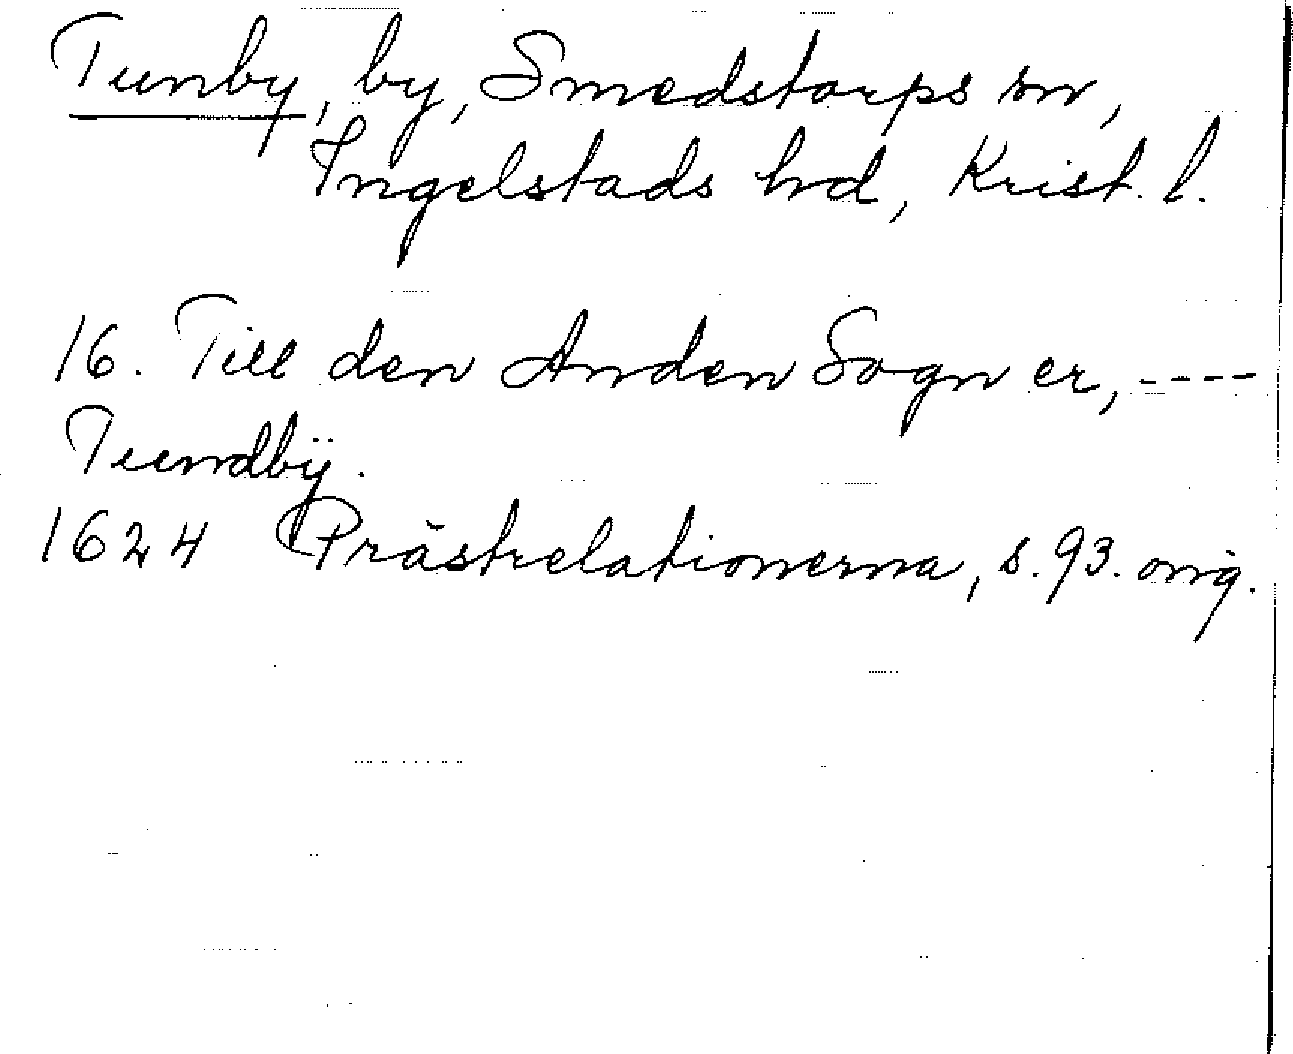 Tunby, by, Smedstorps sn,
Ingelstads hd, Krist. l.
16. Till den Anden Sogn er, ----
Tundbÿ.
1624 Prästrelationerna, s. 93. orig.